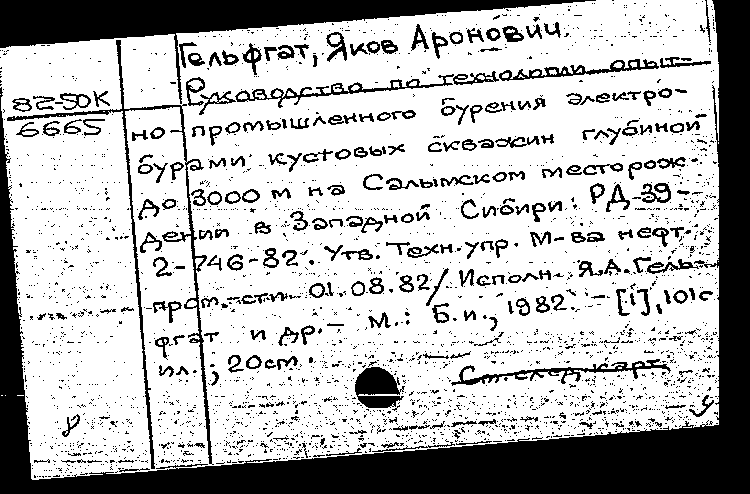 Гельфгат, Яков Аронович.
82-50К
6665
Руководство по технологии опыт-
но-промышленного бурения электро-
бурами кустовых скважин глубиной
до 3000 м на Салымском месторож-
дении в Западной Сибири: РД-39-
2-746-82. Утв. Техн. упр. М-ва нефт.
пром.-сти 01.08.82/ Исполн. Я.А. Гель-
фгат и др. - М.: Б.и., 1982. - [1], 101с
ил.; 20см.
См. след. карт.